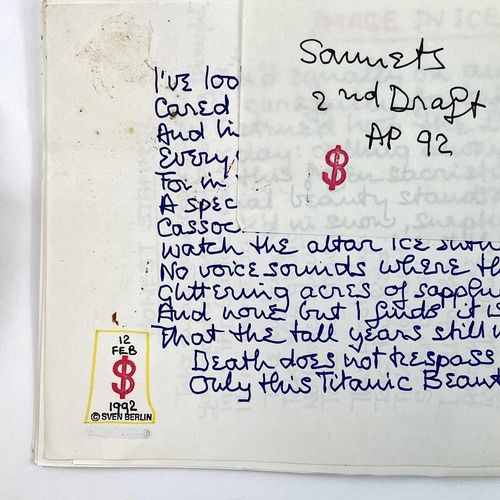 Sonnets
2nd Draft
AP 92
$
I've loo
Cared
And lin
Every
For in
A spec
Cassoc
Watch the altar ice
No voice sounds where th
Glittering acres of
And none but I finds it is
That the tall years still
Death does not trespass
Only this Titanic Beaut
12
FEB
$
1992
© SVEN BERLIN